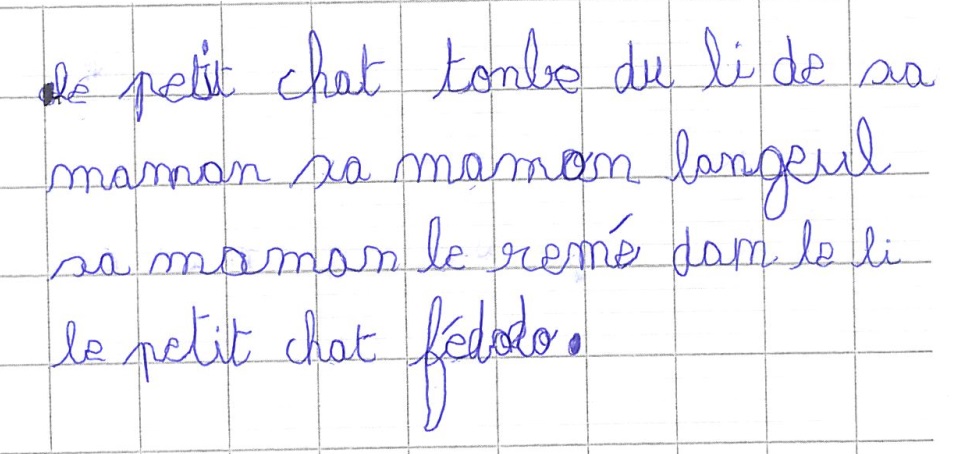 le petit chat tonbe du li de sa
maman sa maman langeul
sa maman le remé dam le li
le petit chat fédodo.